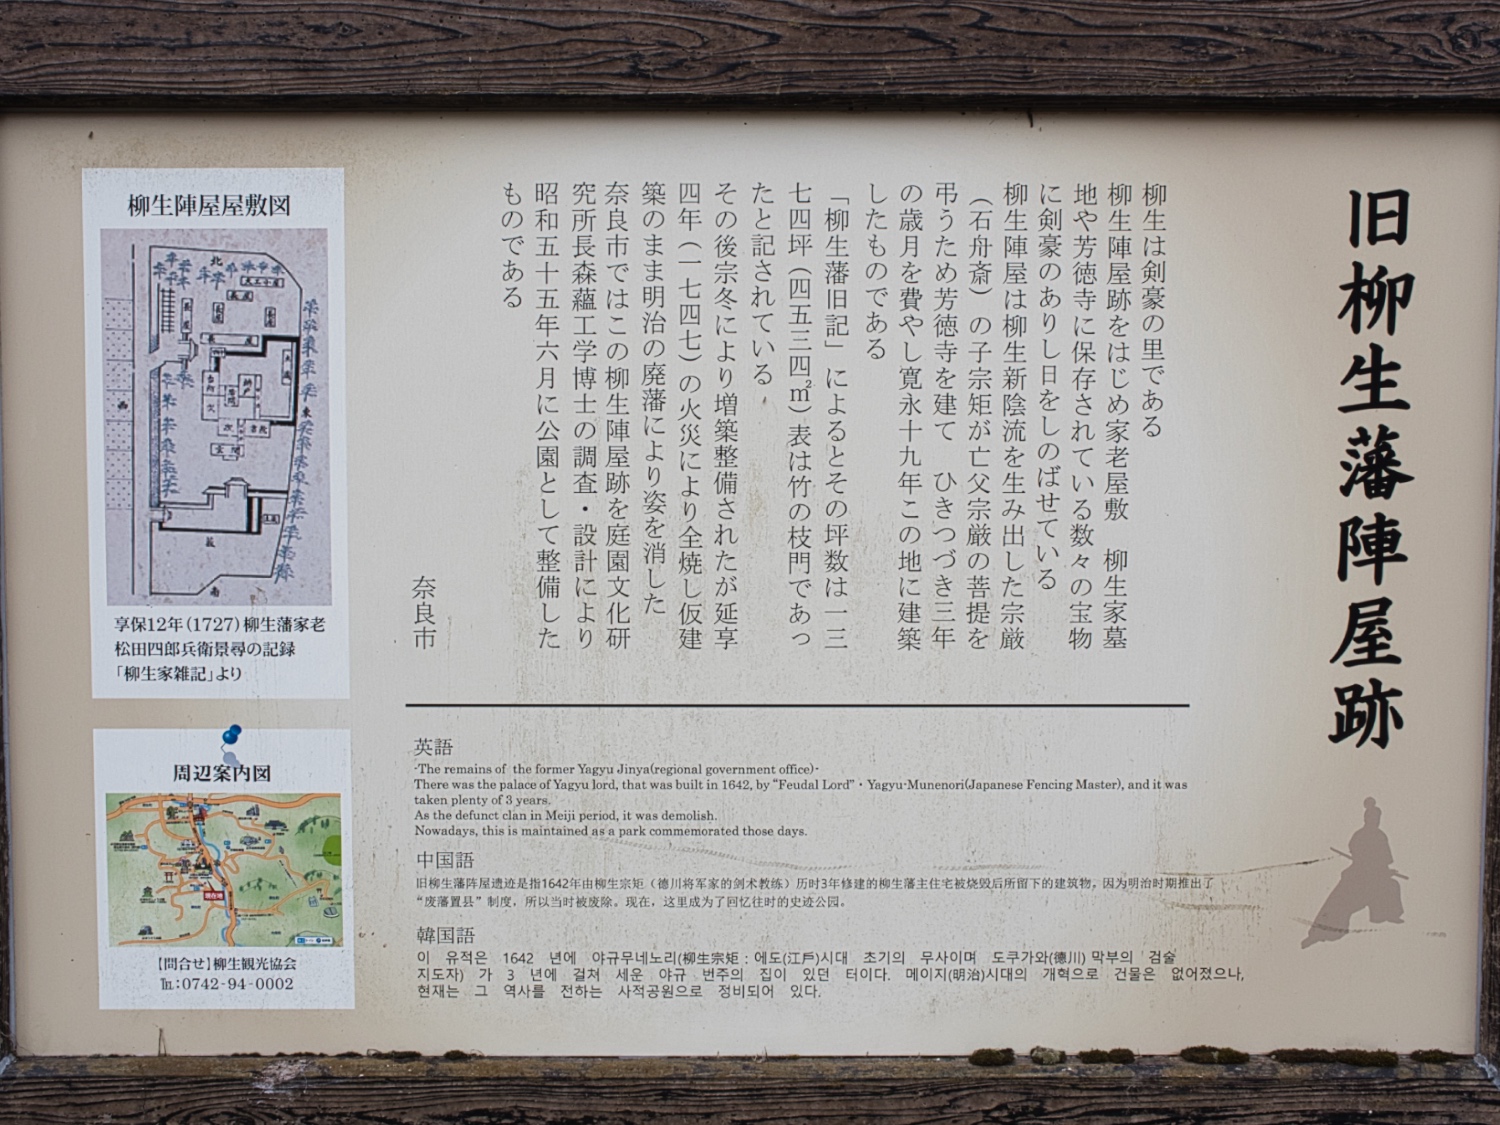 旧柳生藩陣屋跡
柳生は剣豪の里である
柳生陣屋跡をはじめ家老屋敷　柳生家墓
地や芳徳寺に保存されている数々の宝物
に剣豪のありし日をしのばせている
柳生陣屋は柳生新陰流を生み出した宗厳
（石舟斎）の子宗矩が亡父宗厳の菩提を
弔うため芳徳寺を建て　ひきつづき三年
の歳月を費やし寛永十九年この地に建築
したものである
「柳生藩旧記」によるとその坪数は一三
七四坪（四五三四㎡）表は竹の枝門であっ
たと記されている
その後宗冬により増築整備されたが延享
四年（一七四七）の火災により全焼し仮建
築のまま明治の廃藩により姿を消した
奈良市ではこの柳生陣屋跡を庭園文化研
究所長森蘊工学博士の調査・設計により
昭和五十五年六月に公園として整備した
ものである
奈良市
柳生陣屋屋敷図
北
長屋
東
西
玄関
南
享保12年(1727)柳生藩家老
松田四郎兵衛景尋の記録
「柳生家雑記」より
周辺案内図
現在地
【問合せ】柳生観光協会
℡:0742-94-0002
英語
-The remains of the former Yagyu Jinya(regional government office)-
There was the palace of Yagyu lord, that was built in 1642, by “Feudal Lord”・Yagyu-Munenori(Japanese Fencing Master), and it was
taken plenty of 3 years.
As the defunct clan in Meiji period, it was demolish.
Nowadays, this is maintained as a park commemorated those days.
中国語
旧柳生藩阵屋遗迹是指1642年由柳生宗矩（德川将军家的剑术教练）历时3年修建的柳生藩主住宅被烧毁后所留下的建筑物，因为明治时期推出了
“废藩置县”制度，所以当时被废除。现在，这里成为了回忆往时的史迹公园。
韓国語
이 유적은 1642 년에 야규무네노리(柳生宗矩 : 에도(江戶)시대 초기의 무사이며 도쿠가와(德川) 막부의 검술
지도자) 가 3 년에 걸쳐 세운 야규 번주의 집이 있던 터이다. 메이지(明治)시대의 개혁으로 건물은 없어졌으나,
현재는 그 역사를 전하는 사적공원으로 정비되어 있다.